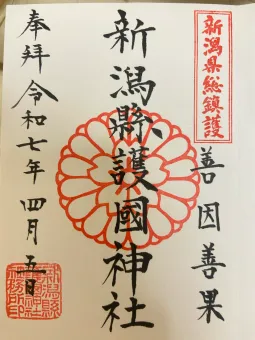 新潟県総鎮護
善因善果
新潟縣護國神社
奉拝 令和七年 四月 五日